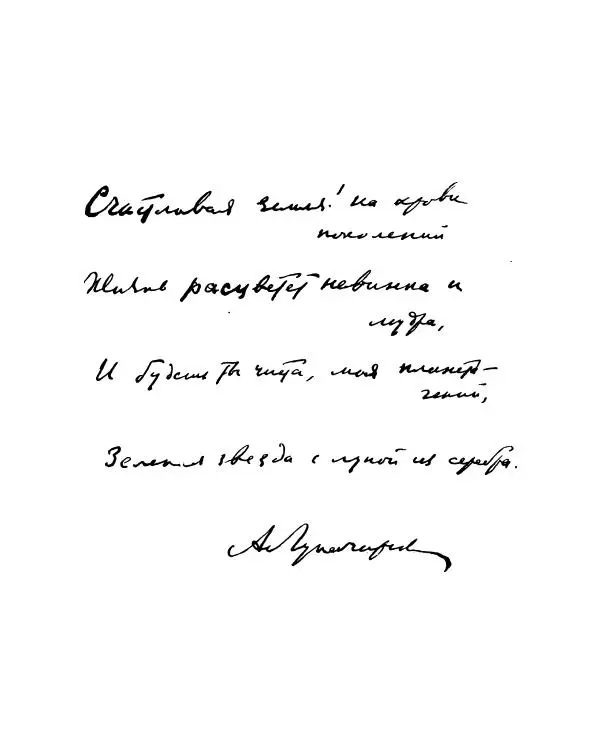 Счастливая земля! на крови
поколений
Жизнь расцветет невинна и
мудра,
И будешь ты чиста, моя планет-
гений,
Зеленая звезда с луной из серебра.
А. Луначарский